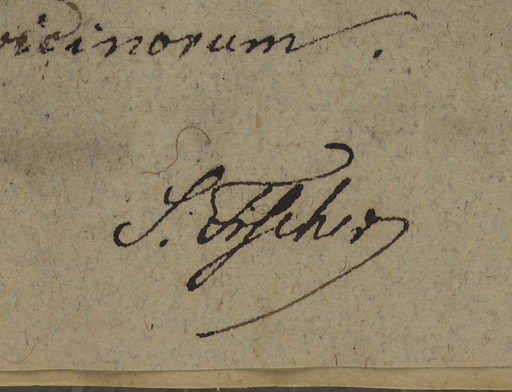 vicinorum.
S. Fischer